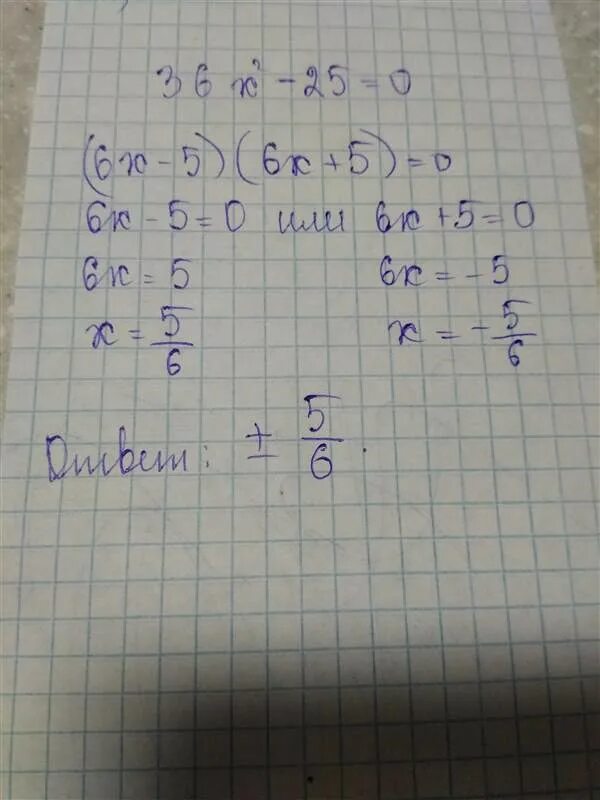 36x² - 25 = 0
(6x - 5)(6x + 5) = 0
6x - 5 = 0 или 6x + 5 = 0
6x = 5 6x = -5
x = 5/6 x = -5/6
Ответ: ± 5/6.